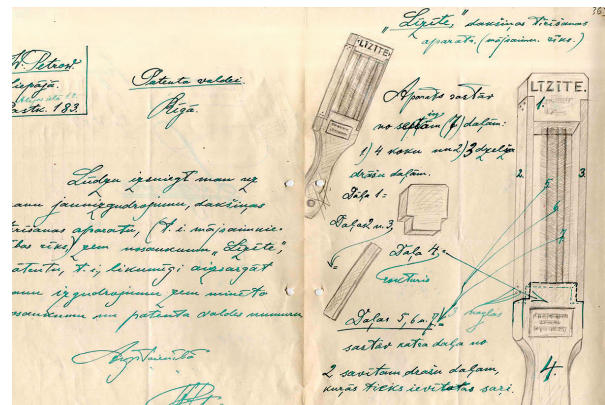 K. Petrow
Liepājā.
Pastk. 183.
Patenta valdei
Rīgā.
Lūdzu izsniegt man uz
manu jaunizgudrojumu, dakšiņas
tīrīšanas aparatu, (t. i. mājsaimnie-
cības rīks) zem nosaukuma "Līzīte",
patentu, t. i. likumīgi aizsargāt
manu izgudrojumu zem minēto
nosaukumu un patenta valdes numuru
"Līzīte," dakšiņas tīrīšanas
aparats. (mājsaimn. rīks.)
363
LĪZĪTE.
Aparats sastāv
no septiņām (7) daļām:
1) 4 koku un 2) 3 dzelža
drāšu daļām.
Daļa 1 =
Daļas 2 un 3,
=
Daļa 4 =
rokturis
naglas
Daļas 5, 6 u. 7 =
sastāv katra daļa no
2 savītam drāšu daļām,
kurās tieks ievītotas sari.
LĪZĪTE.
1.
2.
3.
5
6
7
4.